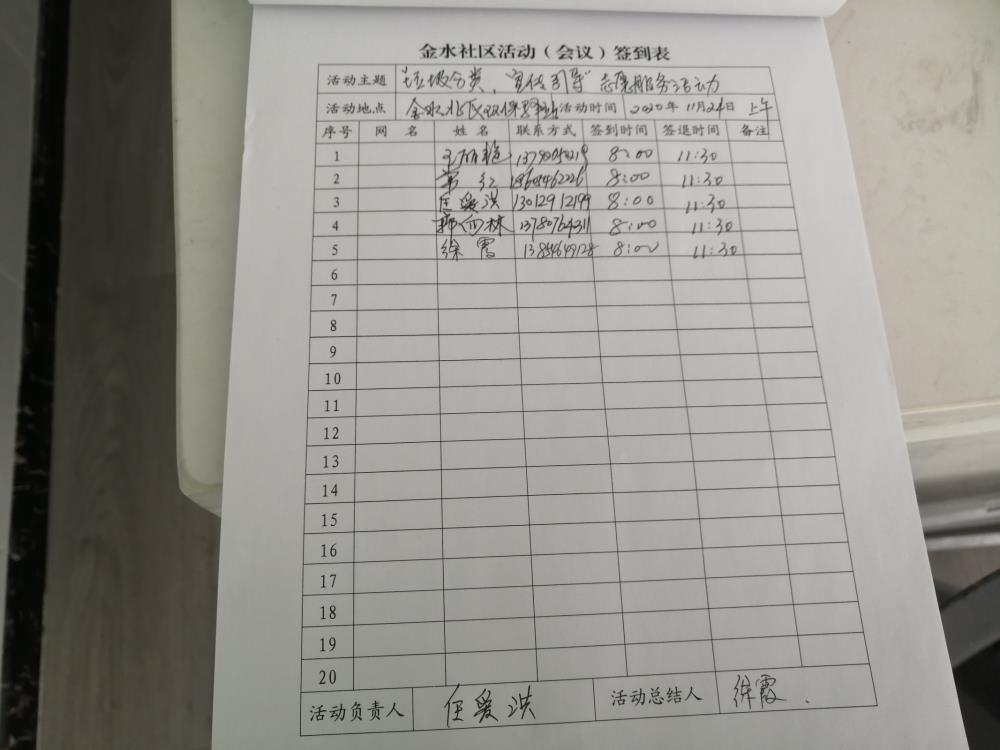 金水社区活动（会议）签到表
活动主题 "垃圾分类，宣传引导"志愿服务活动
活动地点 金水社区环保驿站 活动时间 2020年11月24日 上午
序号 网 名 姓 名 联系方式 签到时间 签退时间 备注
1 8:00 11:30
2 常红 8:00 11:30
3 任爱洪 13012912199 8:00 11:30
4 郭向林 13780764311 8:00 11:30
5 徐霞 13854649128 8:00 11:30
6
7
8
9
10
11
12
13
14
15
16
17
18
19
20
活动负责人 任爱洪 活动总结人 徐霞.